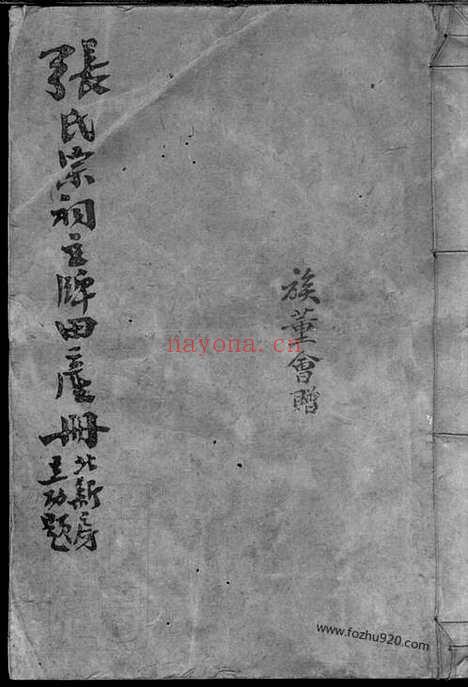 張氏宗祠主牌田產冊
北新房
主功題
族董會贈
nayona.cn
www.fozhu920.com